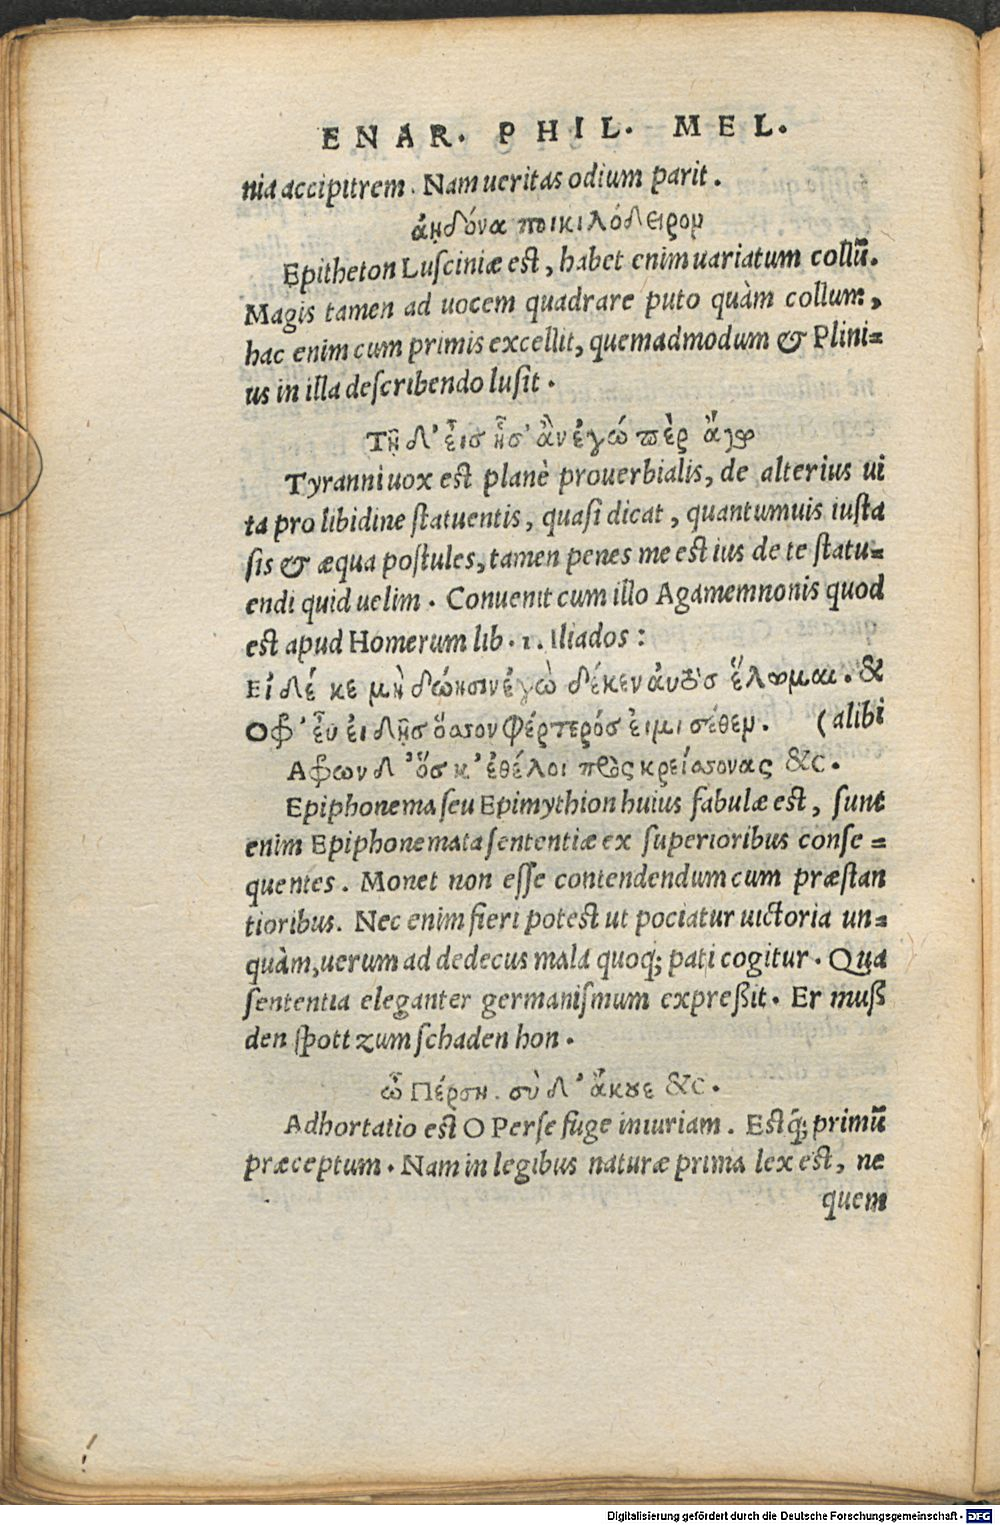 ENAR. PHIL. MEL.
nia accipitrem. Nam ueritas odium parit.
ἀηδόνα ποικιλόδειρον
Epitheton Lusciniæ est, habet enim uariatum collũ.
Magis tamen ad uocem quadrare puto quàm collum,
hac enim cum primis excellit, quemadmodum & Plini=
us in illa describendo lusit.
Τῇ δ' εἶς ᾗ σ' ἂν ἐγώ περ ἄγω
Tyranni uox est planè prouerbialis, de alterius ui
ta pro libidine statuentis, quasi dicat, quantumuis iusta
sis & æqua postules, tamen penes me est ius de te statu=
endi quid uelim. Conuenit cum illo Agamemnonis quod
est apud Homerum lib. 1. Iliados:
Εἰ δέ κε μὴ δώησιν ἐγὼ δέ κεν αὐτὸς ἕλωμαι. &
Οφρ' εὖ εἰδῇς ὅσσον φέρτερός εἰμι σέθεν. (alibi
Αφρων δ' ὅς κ' ἐθέλοι πρὸς κρείσσονας &c.
Epiphonema seu Epimythion huius fabulæ est, sunt
enim Epiphonemata sententiæ ex superioribus conse=
quentes. Monet non esse contendendum cum præstan
tioribus. Nec enim fieri potest ut pociatur uictoria un=
quàm, uerum ad dedecus mala quoq; pati cogitur. Qua
sententia eleganter germanismum expreßit. Er muß
den spott zum schaden hon.
ὦ Πέρση. σὺ δ' ἄκουε &c.
Adhortatio est O Perse fuge iniuriam. Estq́; primũ
præceptum. Nam in legibus naturæ prima lex est, ne
quem
Digitalisierung gefördert durch die Deutsche Forschungsgemeinschaft - DFG